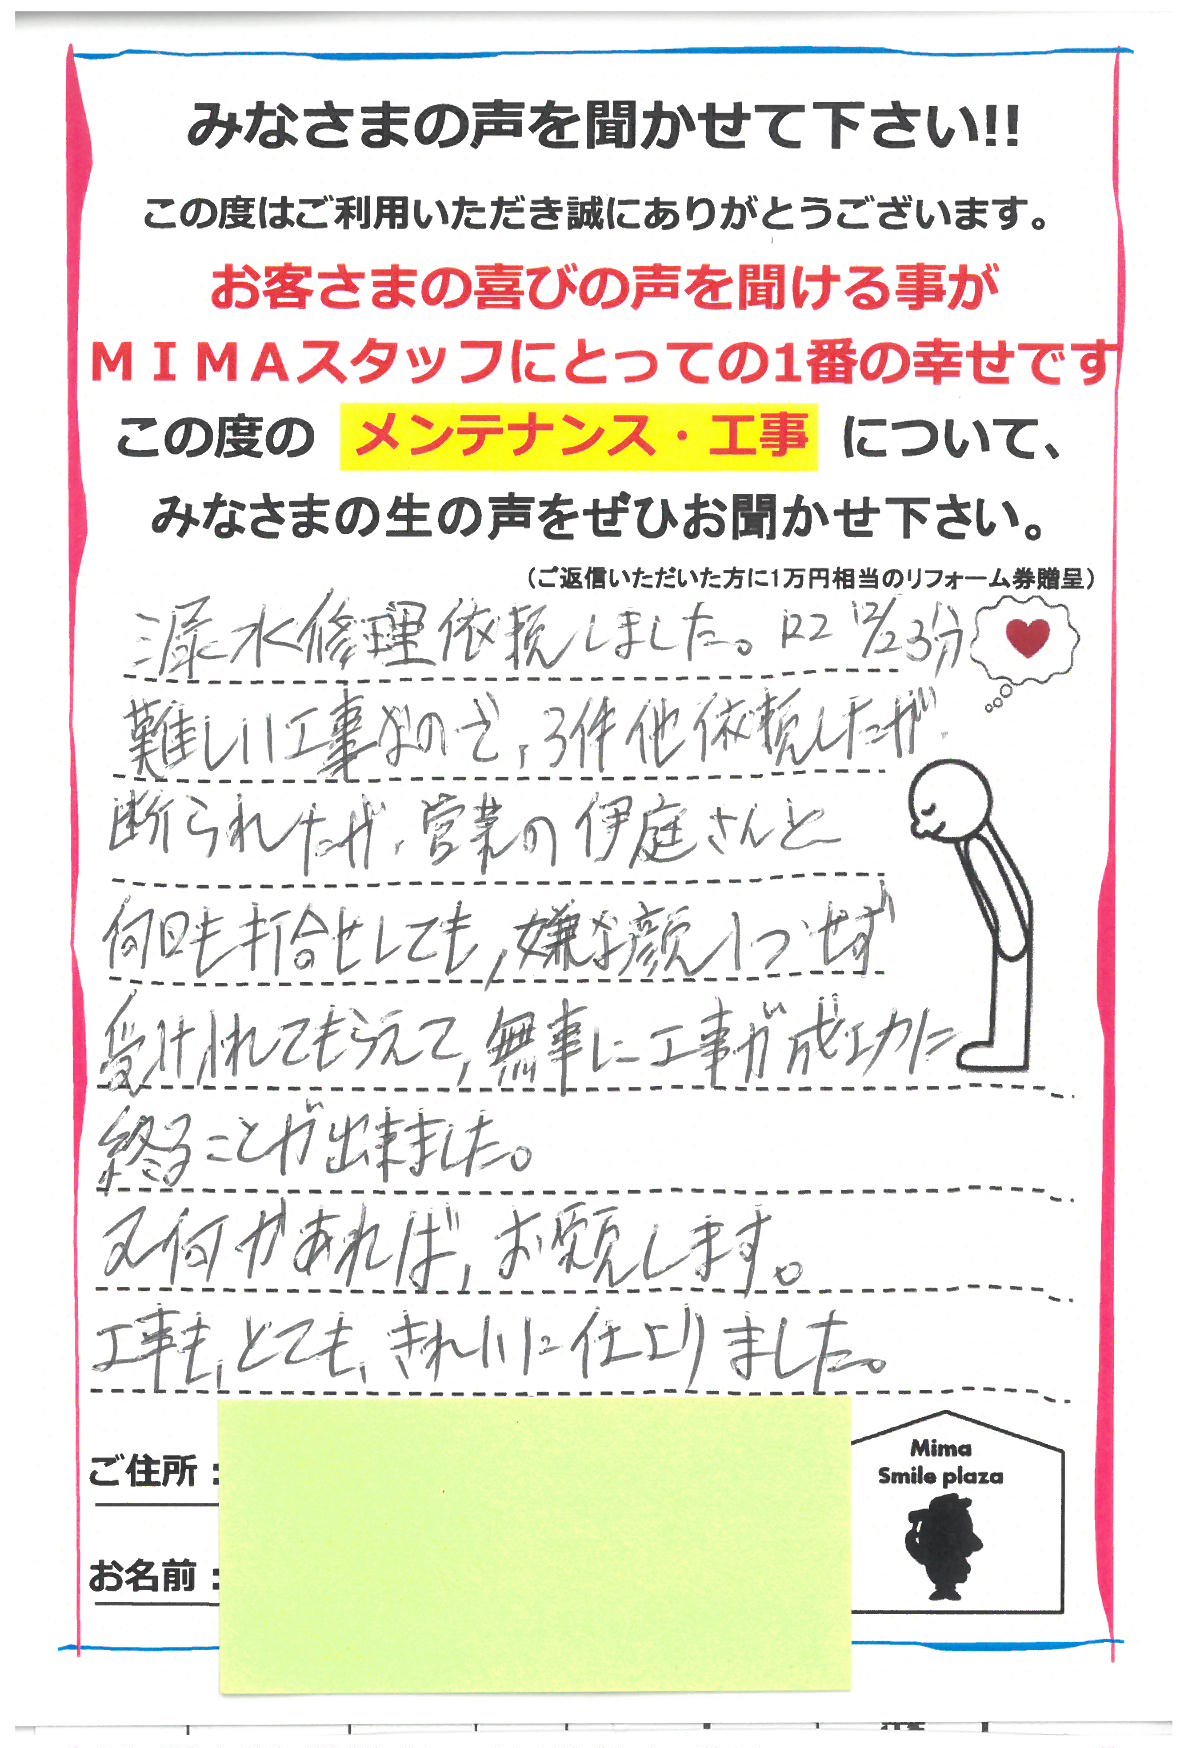 みなさまの声を聞かせて下さい!!
この度はご利用いただき誠にありがとうございます。
お客さまの喜びの声を聞ける事が
ＭＩＭＡスタッフにとっての1番の幸せです
この度の メンテナンス・工事 について、
みなさまの生の声をぜひお聞かせ下さい。
（ご返信いただいた方に1万円相当のリフォーム券贈呈）
漏水修理依頼しました。R2 12/23分
難しい工事なので、3件他依頼したが、
断られたが、営業の伊庭さんと
何回も打合せしても、嫌な顔1つせず
受け入れてもらえて、無事に工事が成功に
終ることが出来ました。
又何かあれば、お願します。
工事も、とても、きれいに仕上りました。
ご住所：
お名前：
Mima
Smile plaza